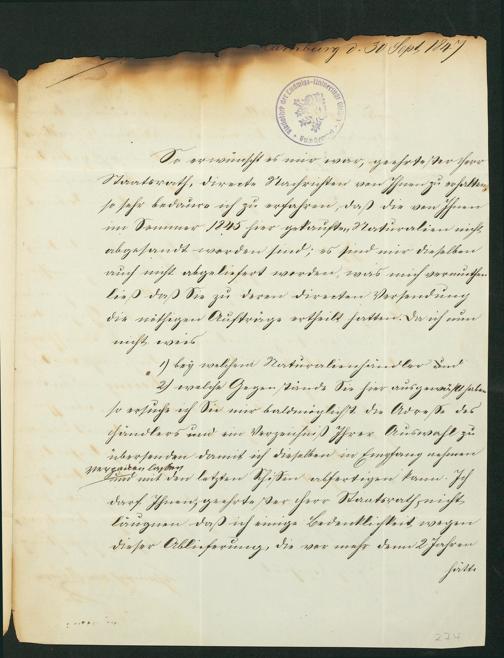 Hamburg d. 30 Sept. 1847
So erwünscht es mir war, geehrtester Herr
Staatsrath, directe Nachrichten von Ihnen zu erhalten,
so sehr bedaure ich zu erfahren, daß die von Ihnen
im Sommer 1845 hier gekauften Naturalien nicht
abgesandt worden sind; es sind mir dieselben
auch nicht abgeliefert worden, was mich vermuthen
ließ daß Sie zu deren directen Versendung
die nöthigen Aufträge ertheilt hatten. Da ich nun
nicht weis
1) bey welchem Naturalienhändler und
2) welche Gegenstände Sie hier ausgewählt haben
so ersuche ich Sie mir baldmöglichst die Adresse des
Händlers und ein Verzeichniß Ihrer Auswahl zu
übersenden damit ich dieselben in Empfang nehmen
verpacken lassen
und mit den letzten Schiffen abfertigen kann. Ich
darf Ihnen, geehrtester Herr Staatsrath, nicht
läugnen daß ich einige Bedenklichkeit wegen
dieser Ablieferung, die vor mehr denn 2 Jahren
hätte
274